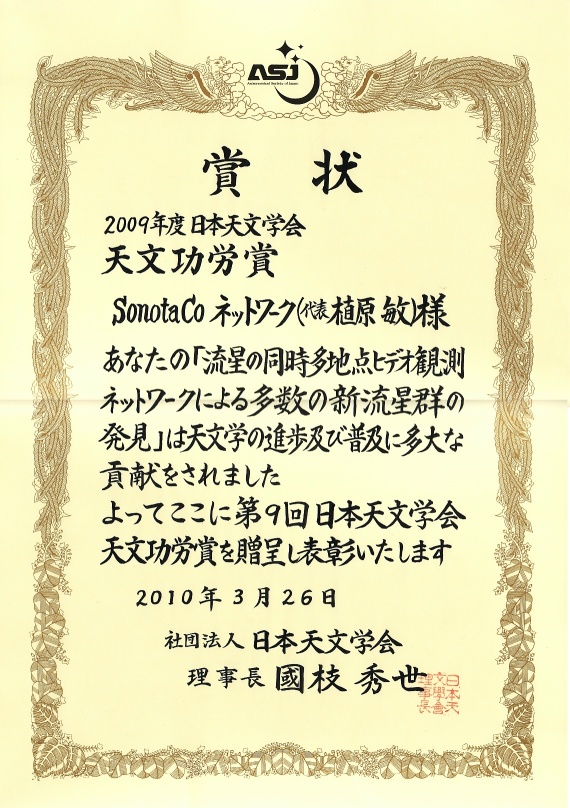 ASJ
Astronomical Society of Japan
賞状
2009年度日本天文学会
天文功労賞
SonotaCo ネットワーク(代表 植原 敏)様
あなたの「流星の同時多地点ビデオ観測
ネットワークによる多数の新流星群の
発見」は天文学の進歩及び普及に多大な
貢献をされました
よってここに第9回日本天文学会
天文功労賞を贈呈し表彰いたします
2010年3月26日
社団法人 日本天文学会
理事長 國枝 秀世
日本天
文學會
理事長